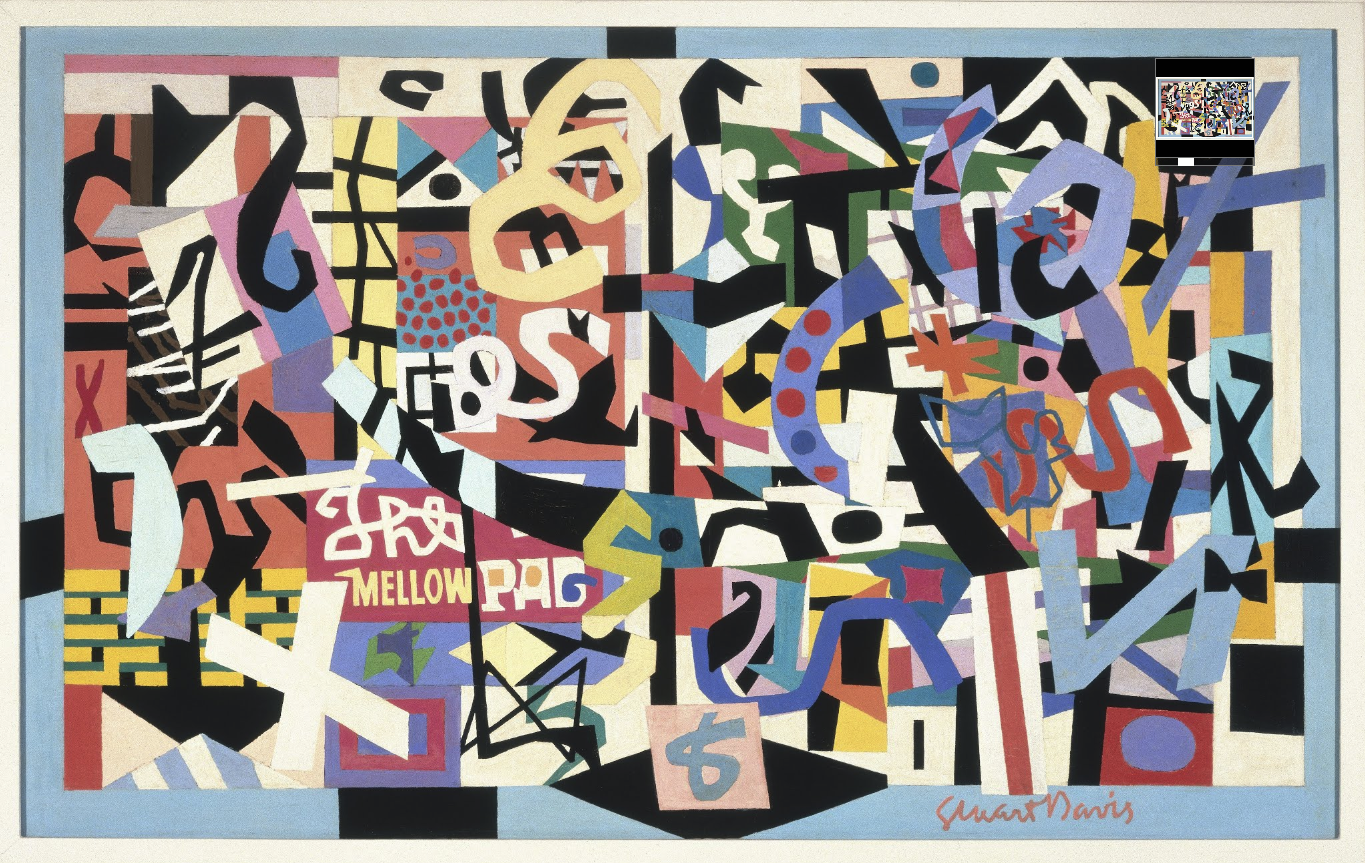 The
MELLOW
PAD
X
8
Stuart Davis